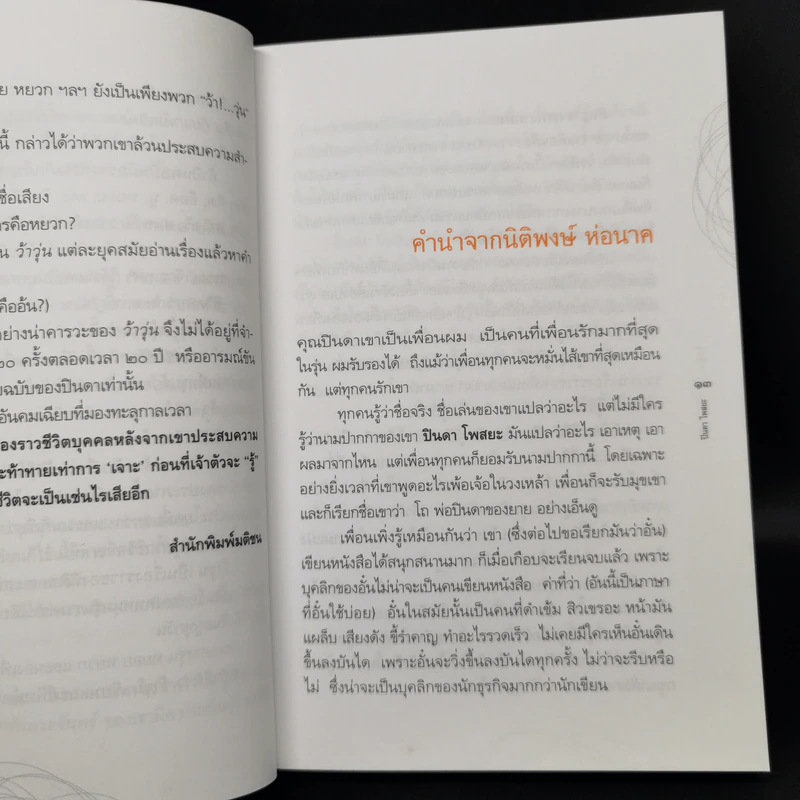 ย หยวก ฯลฯ ยังเป็นเพียงพวก “ว้า!...วุ่น”
นี้ กล่าวได้ว่าพวกเขาล้วนประสบความสำ-
ชื่อเสียง
รคือหยวก?
น ว้าวุ่น แต่ละยุคสมัยอ่านเรื่องแล้วหาคำ
คืออ้น?)
อย่างน่าคารวะของ ว้าวุ่น จึงไม่ได้อยู่ที่จำ-
๒๐ ครั้งตลอดเวลา ๒๐ ปี หรืออารมณ์ขัน
ฉบับของปินดาเท่านั้น
อันคมเฉียบที่มองทะลุกาลเวลา
องราวชีวิตบุคคลหลังจากเขาประสบความ
ะท้าทายเท่าการ ‘เจาะ’ ก่อนที่เจ้าตัวจะ “รู้”
ชีวิตจะเป็นเช่นไรเสียอีก
สำนักพิมพ์มติชน
คำนำจากนิติพงษ์ ห่อนาค
คุณปินดาเขาเป็นเพื่อนผม เป็นคนที่เพื่อนรักมากที่สุด
ในรุ่น ผมรับรองได้ ถึงแม้ว่าเพื่อนทุกคนจะหมั่นไส้เขาที่สุดเหมือน
กัน แต่ทุกคนรักเขา
ทุกคนรู้ว่าชื่อจริง ชื่อเล่นของเขาแปลว่าอะไร แต่ไม่มีใคร
รู้ว่านามปากกาของเขา ปินดา โพสยะ มันแปลว่าอะไร เอาเหตุ เอา
ผลมาจากไหน แต่เพื่อนทุกคนก็ยอมรับนามปากกานี้ โดยเฉพาะ
อย่างยิ่งเวลาที่เขาพูดอะไรเพ้อเจ้อในวงเหล้า เพื่อนก็จะรับมุขเขา
และก็เรียกชื่อเขาว่า โถ พ่อปินดาของยาย อย่างเอ็นดู
เพื่อนเพิ่งรู้เหมือนกันว่า เขา (ซึ่งต่อไปขอเรียกมันว่าอั๋น)
เขียนหนังสือได้สนุกสนานมาก ก็เมื่อเกือบจะเรียนจบแล้ว เพราะ
บุคลิกของอั๋นไม่น่าจะเป็นคนเขียนหนังสือ ค่าที่ว่า (อันนี้เป็นภาษา
ที่อั๋นใช้บ่อย) อั๋นในสมัยนั้นเป็นคนที่ดำเข้ม สิวเขรอะ หน้ามัน
แผล็บ เสียงดัง ขี้รำคาญ ทำอะไรรวดเร็ว ไม่เคยมีใครเห็นอั๋นเดิน
ขึ้นลงบันได เพราะอั๋นจะวิ่งขึ้นลงบันไดทุกครั้ง ไม่ว่าจะรีบหรือ
ไม่ ซึ่งน่าจะเป็นบุคลิกของนักธุรกิจมากกว่านักเขียน
๑๓
ปินดา โพสยะ